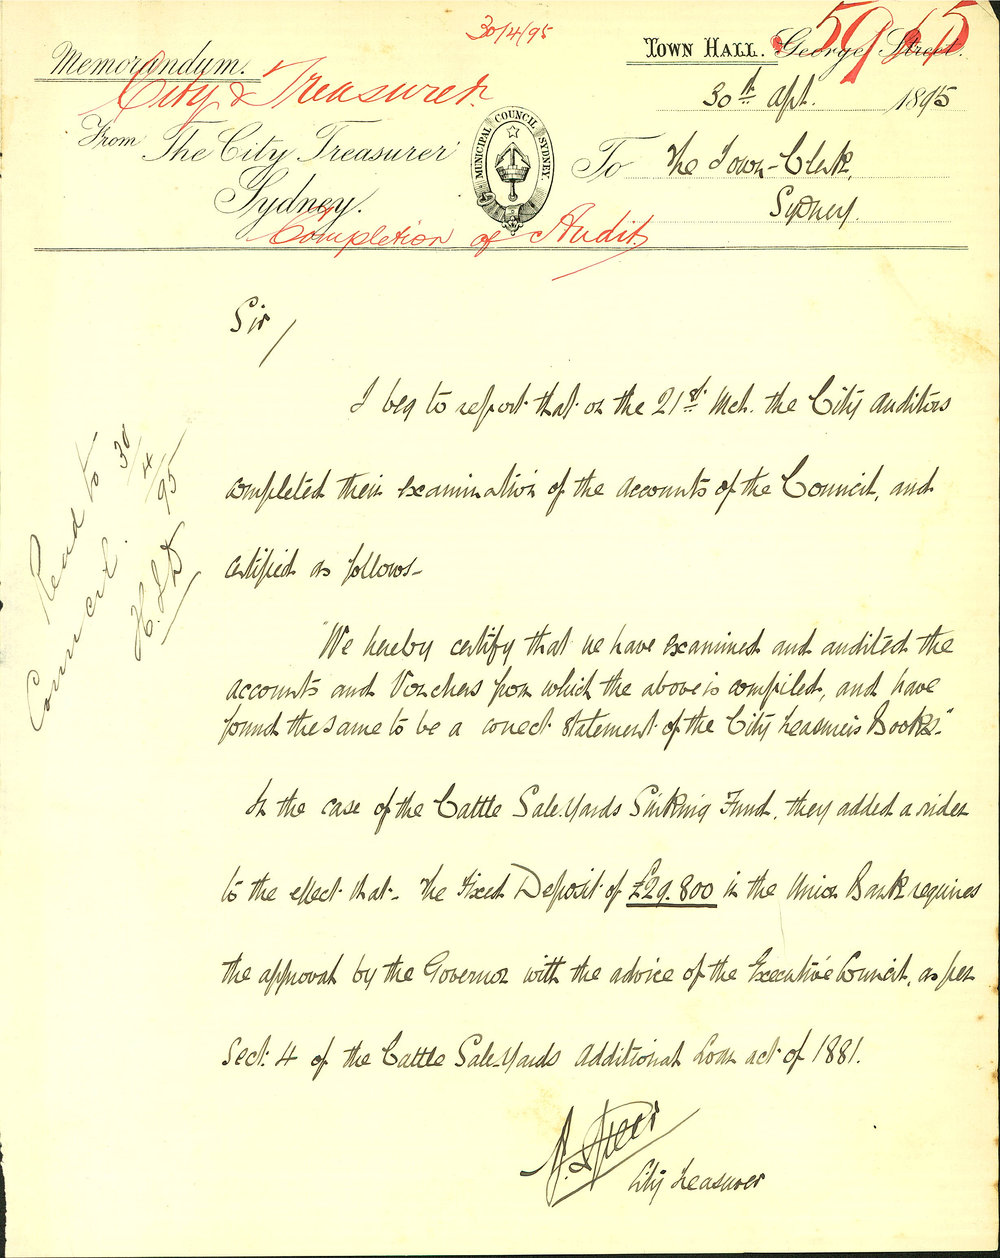 30/4/95
5965
Memorandum.
Town Hall. George Street.
City Treasurer
30th Apl. 1895
From The City Treasurer
Sydney.
MUNICIPAL COUNCIL SYDNEY.
To The Town-Clerk,
Sydney.
Completion of Audit
Sir/
I beg to report that on the 21st Mch. the City Auditors
completed their examination of the accounts of the Council, and
certified as follows-
"We hereby certify that we have examined and audited the
accounts and Vouchers from which the above is compiled, and have
found the same to be a correct statement of the City Treasurer's Books."
In the case of the Cattle Sale-Yards Sinking Fund, they added a rider
to the effect that- The Fixed Deposit of £29.800 in the Union Bank requires
the approval by the Governor with the advice of the Executive Council, as per
Sect: 4 of the Cattle Sale-Yards Additional Loan act of 1881.
City Treasurer
Read to
Council.
30/4/95